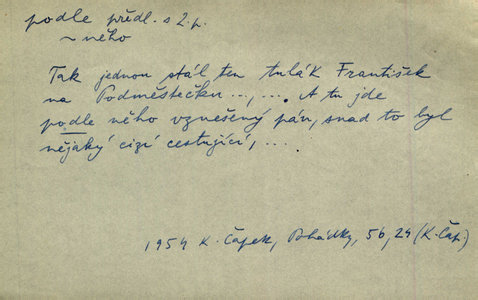 podle předl. s 2. p.
~ něho
Tak jednou stál ten tulák František
na Podměstečku..., ... . A tu jde
podle něho vznešený pán, snad to byl
nějaký cizí cestující, ....
1954 K. Čapek, Pohádky, 56, 24 (K. Čap.)